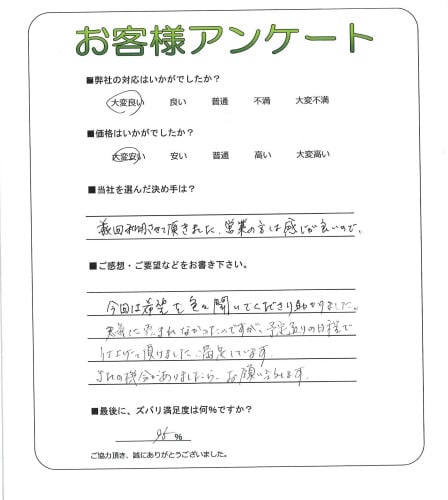 お客様アンケート
■弊社の対応はいかがでしたか？
大変良い 良い 普通 不満 大変不満
■価格はいかがでしたか？
大変安い 安い 普通 高い 大変高い
■当社を選んだ決め手は？
前回利用させて頂きました、営業の方は感じが良いので。
■ご感想・ご要望などをお書き下さい。
今回は希望を色々聞いてくださり助かりました。
天気に恵まれなかったのですが、予定通りの日程で
仕上げて頂けました。満足しています。
の機会がありましたら、お願いします。
■最後に、ズバリ満足度は何%ですか？
95 %
ご協力頂き、誠にありがとうございました。